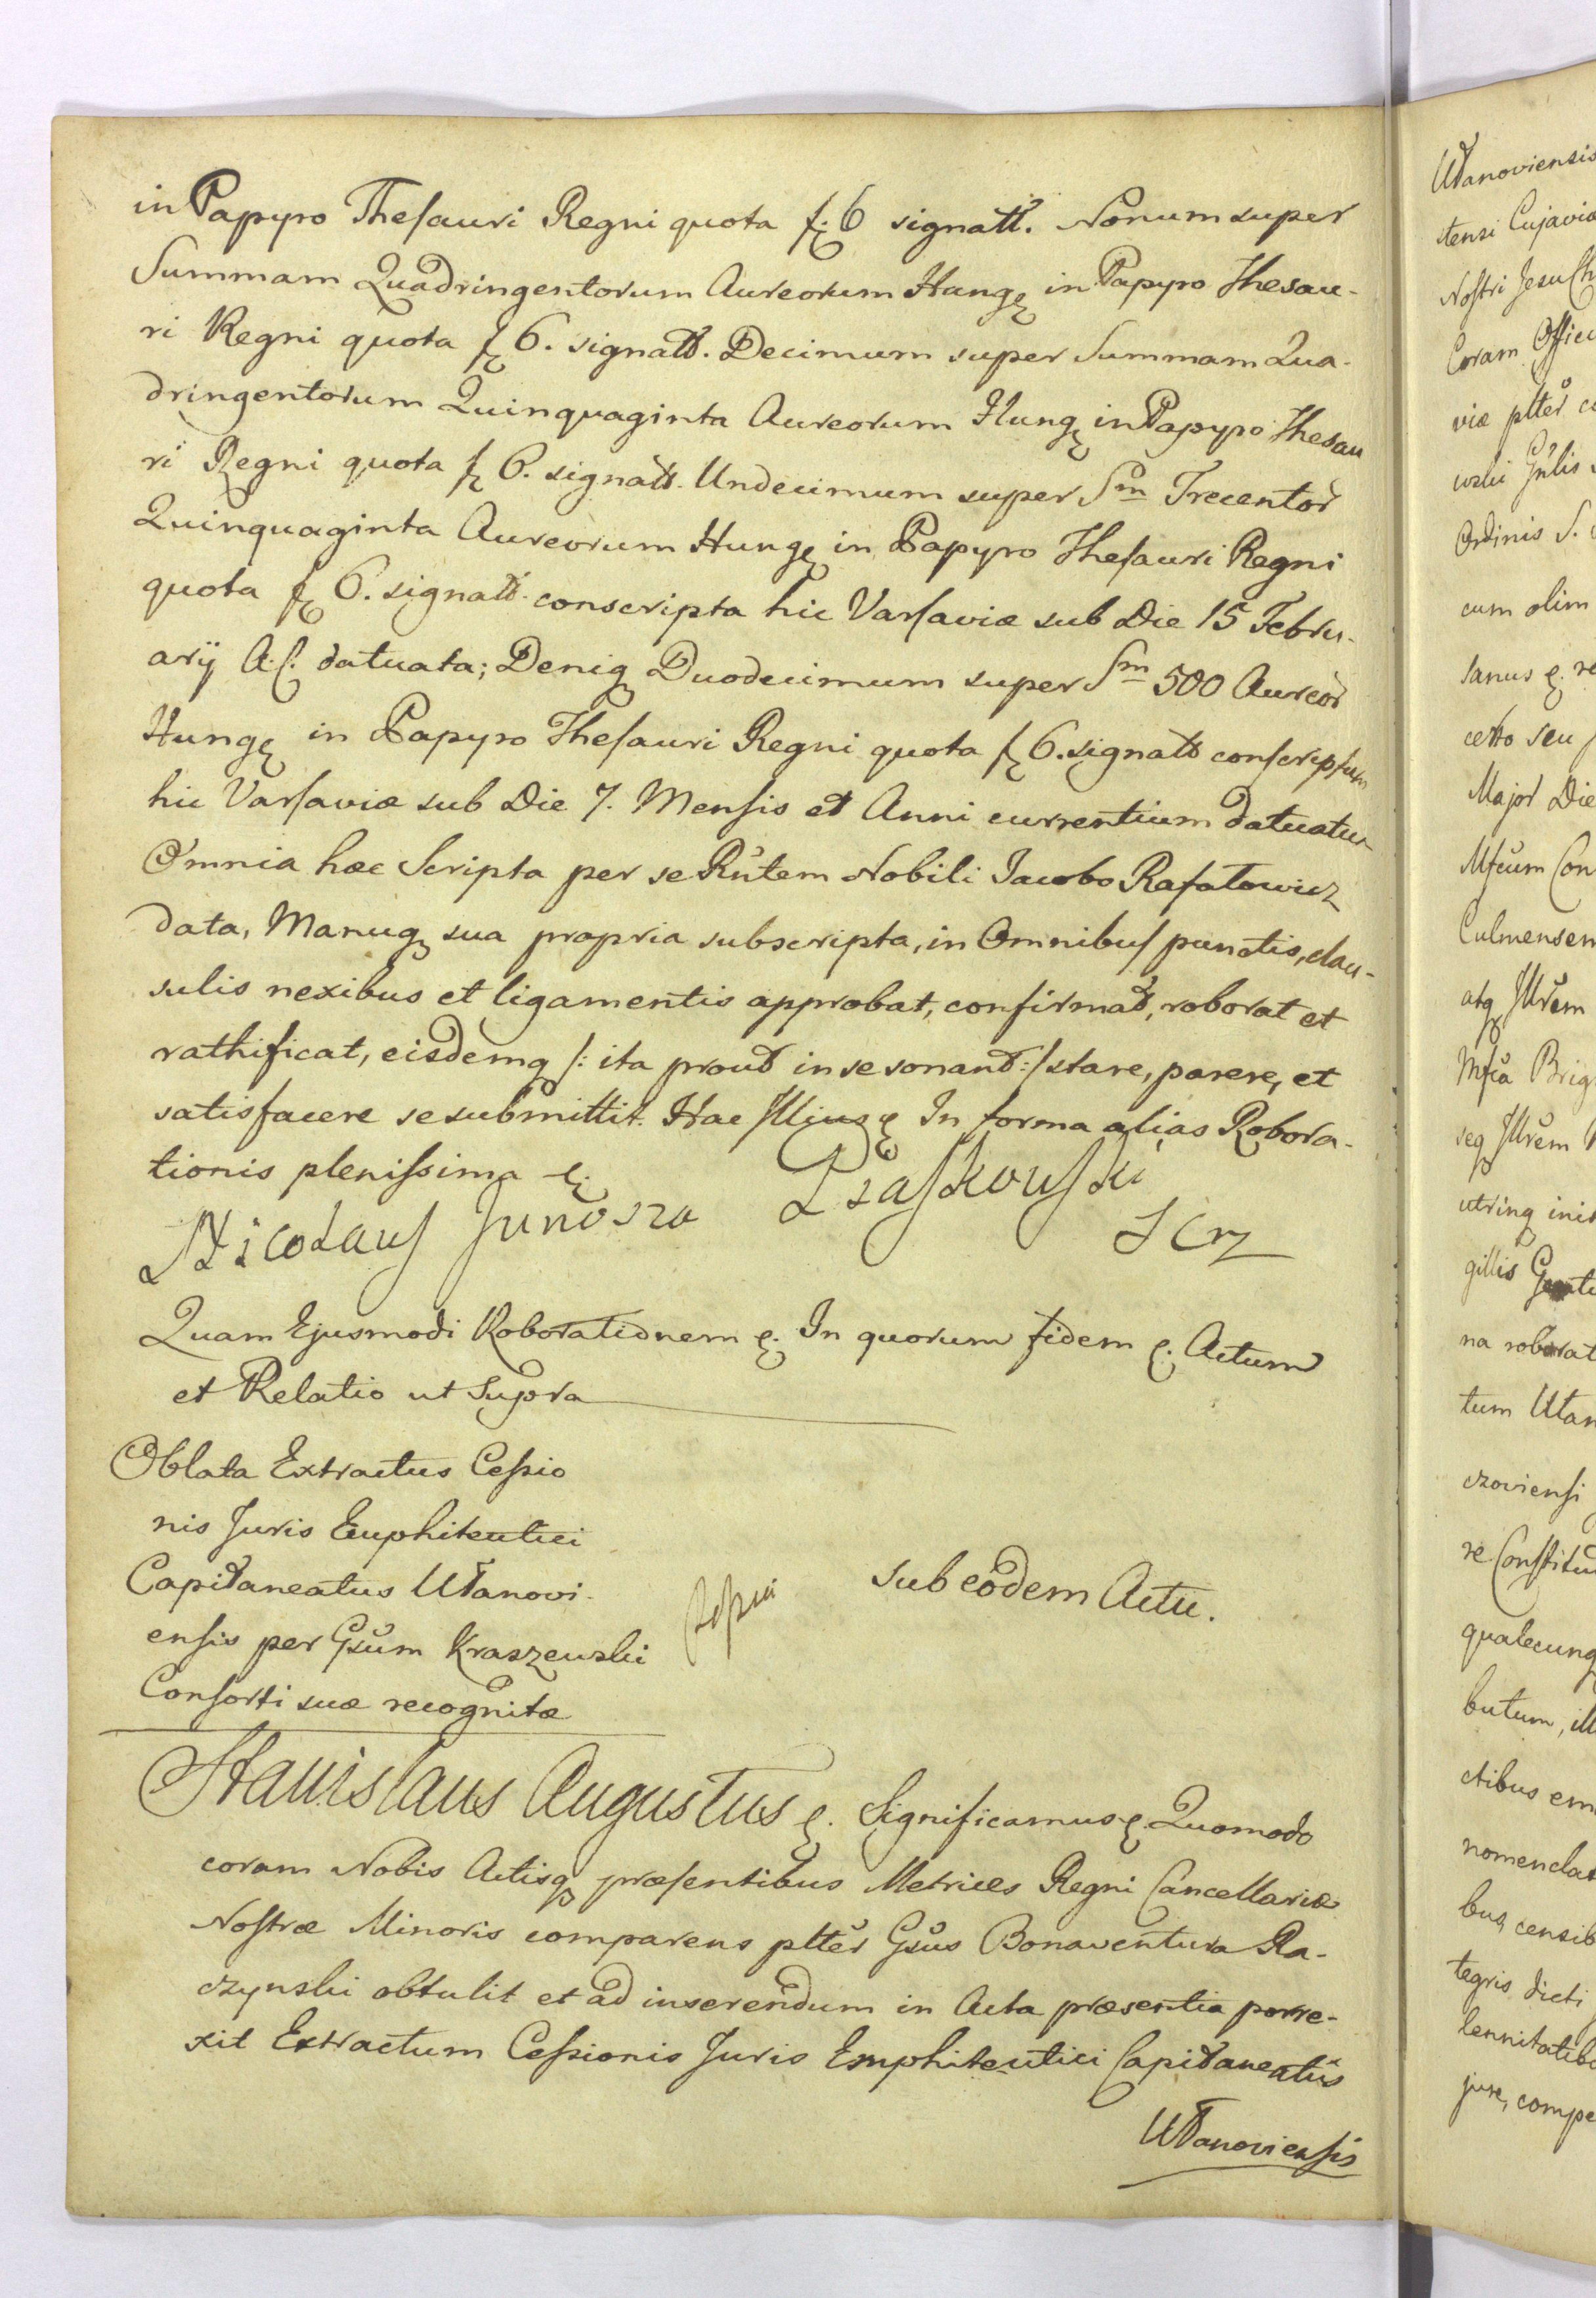 in Papyro Thesauri Regni quota f. 6 signatt. Nonum super
Summam Quadringentorum Aureorum Hung. in Papyro Thesau-
ri Regni quota f. 6. signatt. Decimum super Summam Qua-
dringentorum Quinquaginta Aureorum Hung. in Papyro Thesau
ri Regni quota f. 6. signatt. Undecimum super Sm Trecentor
Quinquaginta Aureorum Hung. in Papyro Thesauri Regni
quota f. 6. signatt. conscripta hic Varsaviæ sub Die 15 Febru-
arij A. C. datuata; Deniq Duodecimum super Sm 500 Aureor
Hung. in Papyro Thesauri Regni quota f. 6. signatt conscriptum
hic Varsaviæ sub Die 7. Mensis et Anni currentium datuatum
Omnia hæc Scripta per se Rntem Nobili Jacobo Rafałowicz
data, Manuq sua propria subscripta, in Omnibus punctis, clau-
sulis nexibus et ligamentis approbat, confirmat, roborat et
rathificat, eisdemq /: ita prout in se sonant :/ stare, parere, et
satisfacere se submittit. Hac Illius In forma alias Robora-
tionis plenissima
Nicolaus Junosza Piaskowski
Quam Ejusmodi Roborationem In quorum fidem Actum
et Relatio ut Supra
Oblata Extractus Cessio
nis Juris Emphiteutici
Capitaneatus Utanovi-
ensis per Gsum Kraszewski
Consorti suæ recognitæ
sub eodem Actu.
Stanislaus Augustus Significamus Quomodo
coram Nobis Actisq præsentibus Metrices Regni Cancellariæ
Nostræ Minoris comparens pltter Gsus Bonaventura Ra-
czynski obtulit et ad inserendum in Acta præsentia porre-
xit Extractum Cessionis Juris Emphiteutici Capitaneatus
Utanoviensis
Utanoviensis
tensi Cujaviæ
Nostri Jesu Ch
Coram Offici
viæ pltter
Ordinis S.
cum olim
Major Die
Culmensem
atq Illrem
seq Illrem
utrinq
gillis
na roborat
tum Utan
czoviensi
re Constitu
qualecunq
butum, ill
ctibus em
nomenclat
bus, censib
tegris dicti
lennitatib
jure, compe